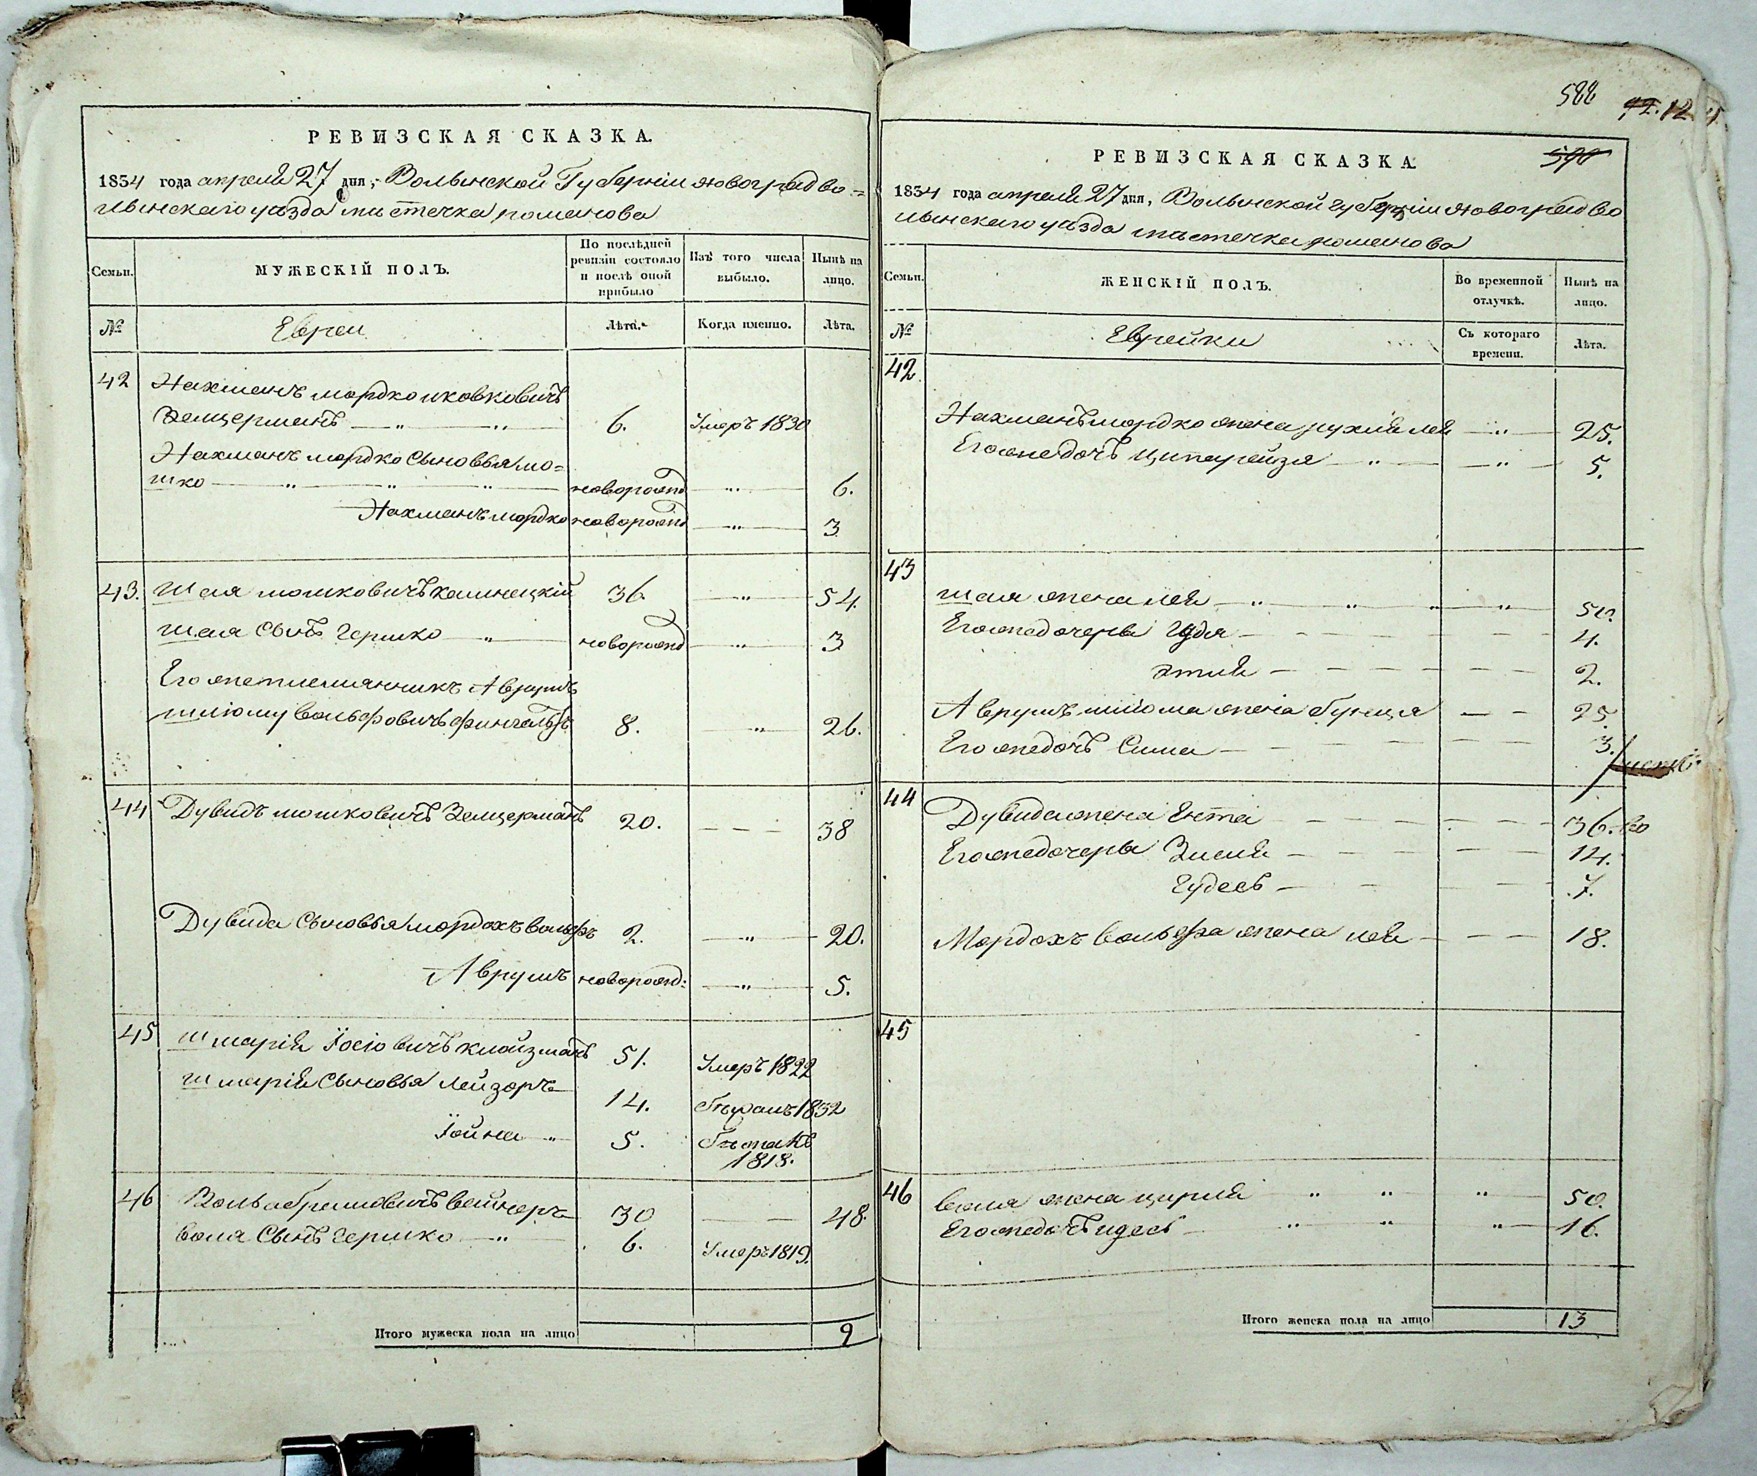 РЕВИЗСКАЯ СКАЗКА.
1834 года апреля 27 дня, Волынской Губернiи Новоградво=
лынскаго уезда местечка романова
Семьи.
МУЖЕСКIЙ ПОЛЪ.
По послѣдней ревизiи состояло и послѣ оной прибыло
Изъ того числа выбыло.
Нынѣ на лицо.
№
Евреи
Лѣта.
Когда именно.
Лѣта.
42 Нахманъ мордко ицковковичъ
Земцерманъ — „ — „ 6. Умеръ 1830
Нахманъ мордко Сыновья мо=
шко — „ — „ — „ — новорожд — „ — 6.
Нахманъ мордко новорожд — „ — 3
43. Шая мошковичъ каминецкiй 36. — „ — 54.
шая Сынъ Гершко — „ — новорожд — „ — 3
Его же племянникъ Аврумъ
шлiому вольфовичъ 8. — „ — 26.
44 Дувидъ мошковичъ Земцерманъ 20. — — — 38
Дувида Сыновья мордохъ вольфъ 2. — „ — 20.
Аврумъ новорожд: — „ — 5.
45 Шмарiя Iосiовичъ клойзманъ 51. Умеръ 1822
Шмарiя Сыновья Лейзоръ 14. 1832
Iойна „ 5. 1818.
46 Воль абрамовичъ вайнеръ 30 — — 48.
воля Сынъ Гершко — „ — 6. Умеръ 1819.
Итого мужеска пола на лицо 9
588
42. 12
590
РЕВИЗСКАЯ СКАЗКА.
1834 года апреля 27 дня, Волынской губернiи Новоградво
лынскаго уезда местечка романова
Семьи.
ЖЕНСКIЙ ПОЛЪ.
Во временной отлучкѣ.
Нынѣ на лицо.
№
Еврейки
Съ котораго времени.
Лѣта.
42
Нахманъ мордко жена рухля лея — „ — 25.
Его же дочь ципорейзя — „ — „ — 5.
43
шая жена лея — „ „ „ „ — 50.
Его же дочери Гудя — — — 4.
этля — — — 2.
Аврумъ шлiома жена бунця — — 25.
Его же дочь Сима — — — 3.
44
Дувида жена Ента — — — 36.
Его же дочери Зисля — — — 14.
Гудесь — — — 7.
Мордохъ вольфа жена лея — — — 18.
45
46 воля жена цирля „ „ „ — 50.
Его же дочь идесь — „ „ „ — 16.
Итого женска пола на лицо 13